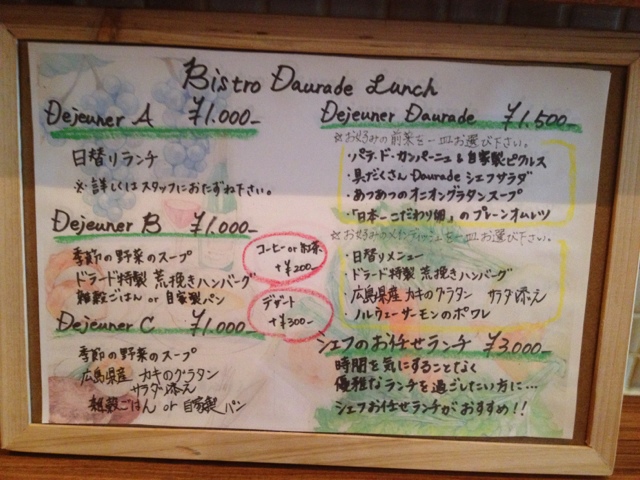 Bistro Daurade Lunch
Dejeuner A ¥1.000-
日替りランチ
※詳しくはスタッフにおたずね下さい。
Dejeuner B ¥1.000-
季節の野菜のスープ
ドラード特製 荒挽きハンバーグ
雑穀ごはん or 自家製パン
コーヒー or 紅茶
+¥200-
デザート
+¥300-
Dejeuner C ¥1.000
季節の野菜のスープ
広島県産 カキのグラタン
サラダ添え
雑穀ごはん or 自家製パン
Dejeuner Daurade ¥1.500-
※お好みの前菜を一皿お選び下さい。
・パテ・ド・カンパーニュ & 自家製ピクルス
・具だくさん Daurade シェフサラダ
・あつあつのオニオングラタンスープ
・「日本一こだわり卵」のプレーンオムレツ
※お好みのメインディッシュを一皿お選び下さい。
・日替りメニュー
・ドラード特製 荒挽きハンバーグ
・広島県産 カキのグラタン サラダ添え
・ノルウェーサーモンのポワレ
シェフのお任せランチ ¥3.000-
時間を気にすることなく
優雅なランチを過ごしたい方に…
シェフお任せランチがおすすめ!!